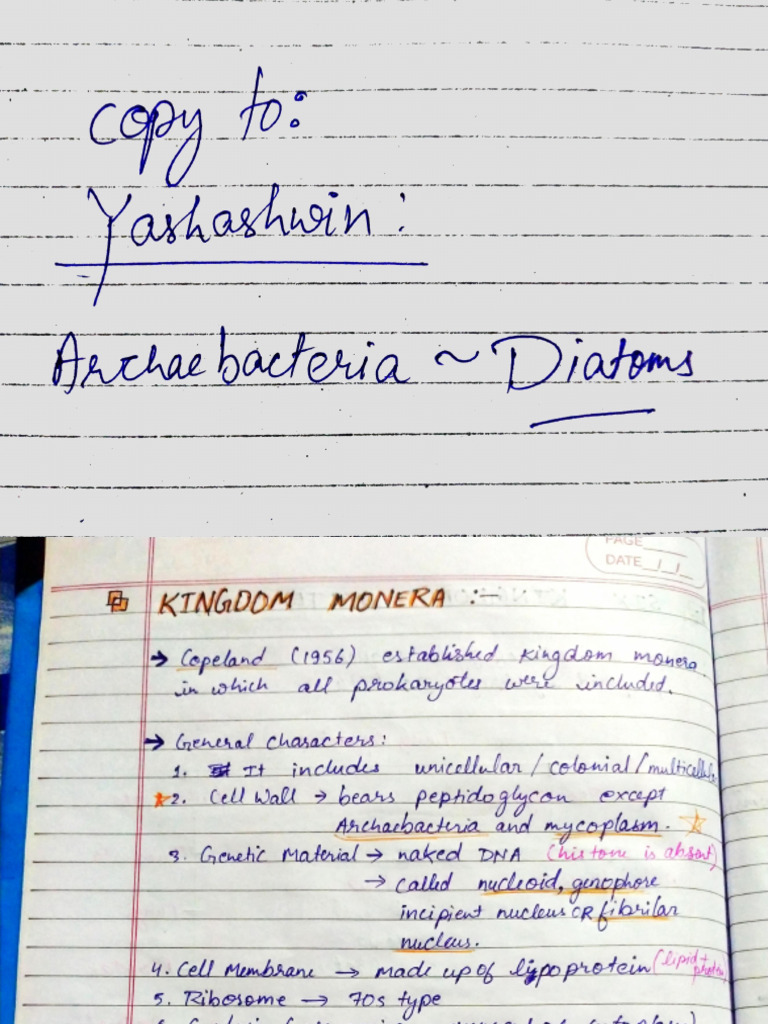 copy to:
Yashashwin:
Archaebacteria ~ Diatoms
PAGE
DATE
KINGDOM MONERA :-
→ Copeland (1956) established kingdom monera
in which all prokaryotes were included.
→ General characters:
1. It includes unicellular / colonial / multicellular
2. Cell Wall → bears peptidoglycan except
Archaebacteria and mycoplasm.
3. Genetic Material → naked DNA (histone is absent)
→ called nucleoid, genophore
incipient nucleus OR fibrilar
nucleus.
4. Cell Membrane → made up of lipoprotein (lipid + protein)
5. Ribosome → 70s type